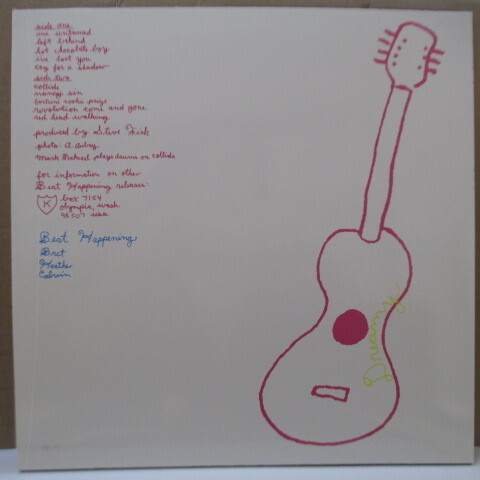 side one
me untamed
left behind
hot chocolate boy
i've lost you
cry for a shadow
side two
collide
nancy sin
fortune cookie prize
revolution come and gone
red head walking
produced by Steve Fisk
photo: A. Aubry
Mark Pickerel plays drums on collide
for information on other
Beat Happening releases:
K box 7154
olympia, wash.
98507 usa
Beat Happening
Bret
Heather
Calvin
Dreamy